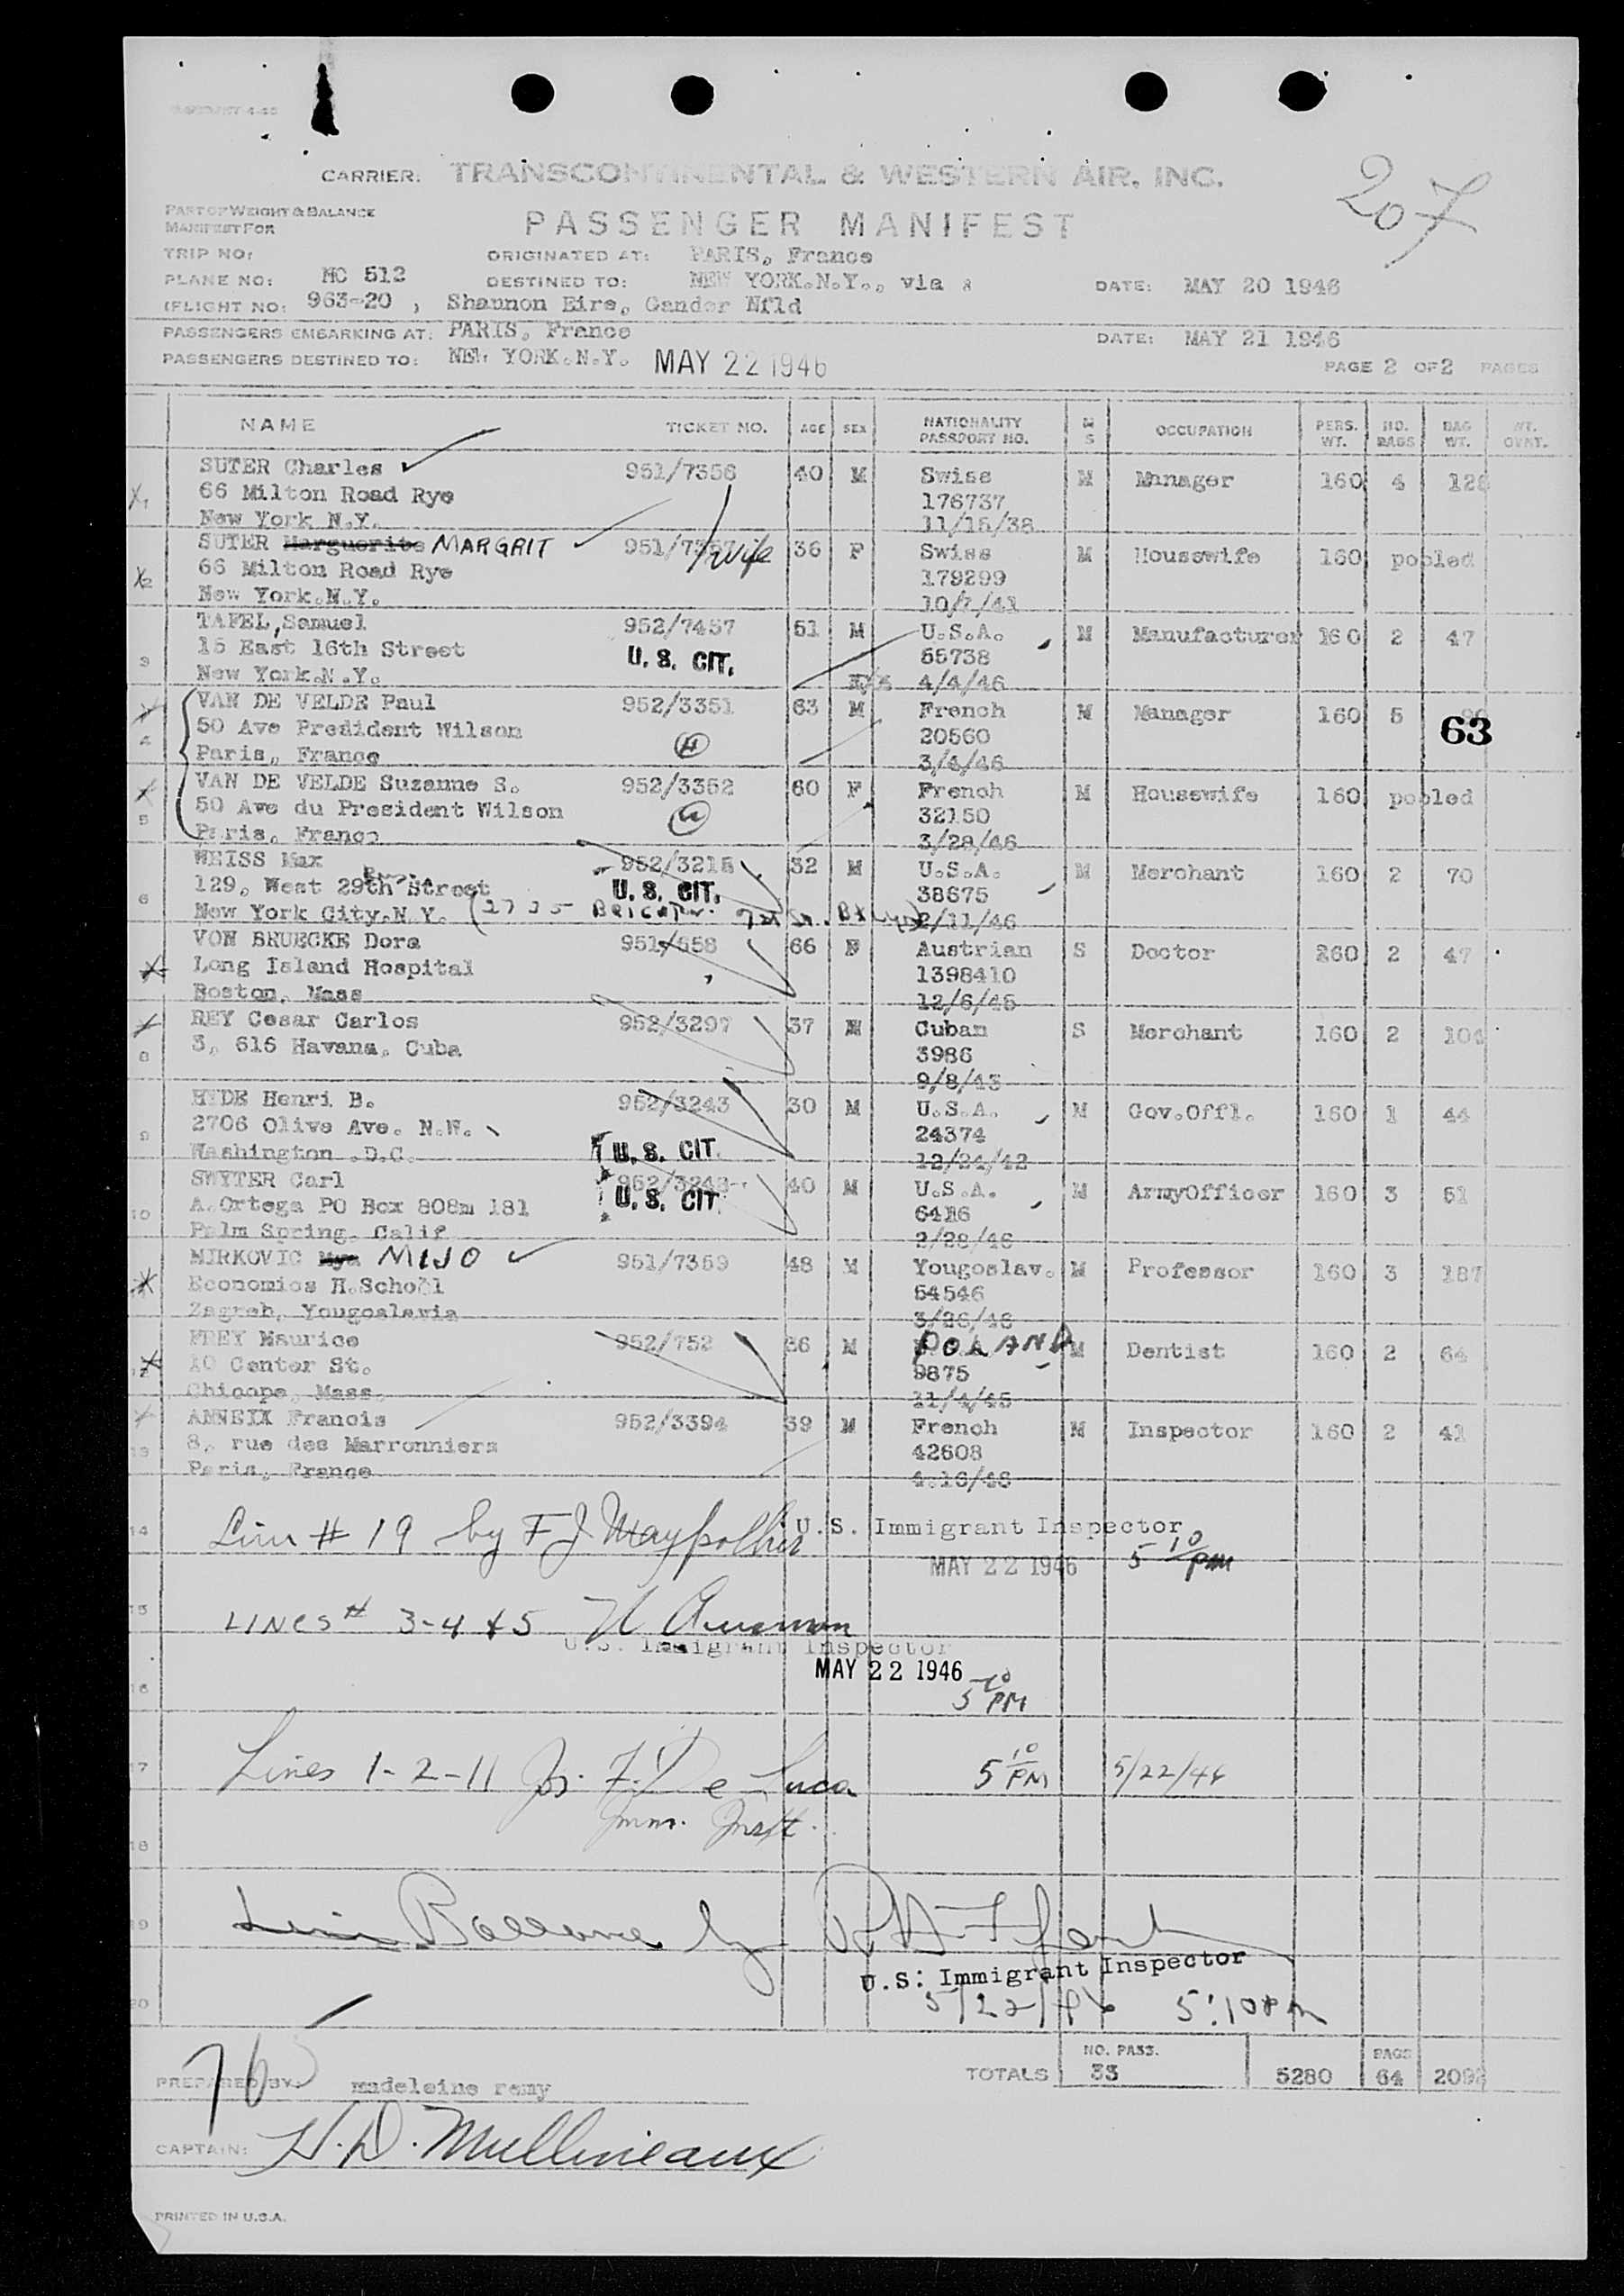 CARRIER: TRANSCONTINENTAL & WESTERN AIR, INC.
207
PART OF WEIGHT & BALANCE
MANIFEST FOR
PASSENGER MANIFEST
TRIP NO: ORIGINATED AT: PARIS, France
PLANE NO: NC 512 DESTINED TO: NEW YORK.N.Y., via DATE: MAY 20 1946
(FLIGHT NO: 963-20 , Shannon Eire, Gander Nfld
PASSENGERS EMBARKING AT: PARIS, France DATE: MAY 21 1946
PASSENGERS DESTINED TO: NEW YORK.N.Y. MAY 22 1946 PAGE 2 OF 2 PAGES
NAME TICKET NO. AGE SEX NATIONALITY PASSPORT NO. M S OCCUPATION PERS. WT. NO. BAGS BAG WT. WT. OVNT.
SUTER Charles 951/7356 40 M Swiss M Manager 160 4 128
66 Milton Road Rye 176737
New York N.Y. 11/15/38
SUTER Marguerite MARGRIT 951/7357 wife 36 F Swiss M Housewife 160 pooled
66 Milton Road Rye 179299
New York.N.Y. 10/1/41
TAFEL,Samuel 952/7457 51 M U.S.A. M Manufacturer 160 2 47
15 East 16th Street U. S. CIT. 55738
New York.N.Y. 4/4/46
VAN DE VELDE Paul 952/3351 63 M French M Manager 160 5
50 Ave President Wilson 20560 63
Paris, France 3/4/46
VAN DE VELDE Suzanne S. 952/3352 60 F French M Housewife 160 pooled
50 Ave du President Wilson 32150
Paris, France 3/28/46
WEISS Max 952/3218 32 M U.S.A. M Merchant 160 2 70
129, West 29th Street U. S. CIT. 38675
New York City.N.Y. (2735 2/11/46
VON BRUECKE Dora 951/558 66 F Austrian S Doctor 260 2 47
Long Island Hospital 1398410
Boston, Mass 12/6/45
REY Cesar Carlos 952/3297 37 M Cuban S Merchant 160 2 104
3, 616 Havana, Cuba 3986
9/8/43
HYDE Henri B. 952/3243 30 M U.S.A. M Gov.Offl. 160 1 44
2706 Olive Ave. N.W. 24374
Washington .D.C. U. S. CIT. 12/24/42
SWYTER Carl 952/3248 40 M U.S.A. M ArmyOfficer 160 3 51
A.Ortega PO Box 808m 181 U. S. CIT. 6416
Palm Spring, Calif 2/28/46
MIRKOVIC Mya MIJO 951/7359 48 M Yougoslav. M Professor 160 3 187
Economics H.School 54546
Zagreb, Yougoslavia 3/26/46
FREY Maurice 952/752 36 M POLAND M Dentist 160 2 64
10 Center St. 9875
Chicope, Mass. 11/4/45
ANNEIX Francis 952/3394 39 M French M Inspector 160 2 41
8, rue des Marronniers 42608
Paris, France 4.16/46
14 Line # 19 by F J U.S. Immigrant Inspector
MAY 22 1946 5 10 pm
15 LINES # 3-4 & 5
U.S. Immigrant Inspector
MAY 22 1946
16 5 10 PM
17 Lines 1-2-11 F. De Luca 5 10 PM 5/22/46
Imm. Inspt.
18
19 Line Balance by
U.S. Immigrant Inspector
20 5/22/46 5:10 PM
TOTALS NO. PASS. 33 5280 BAGS 64 2092
PREPARED BY: madeleine remy
CAPTAIN: H. D. Mullineaux
PRINTED IN U.S.A.